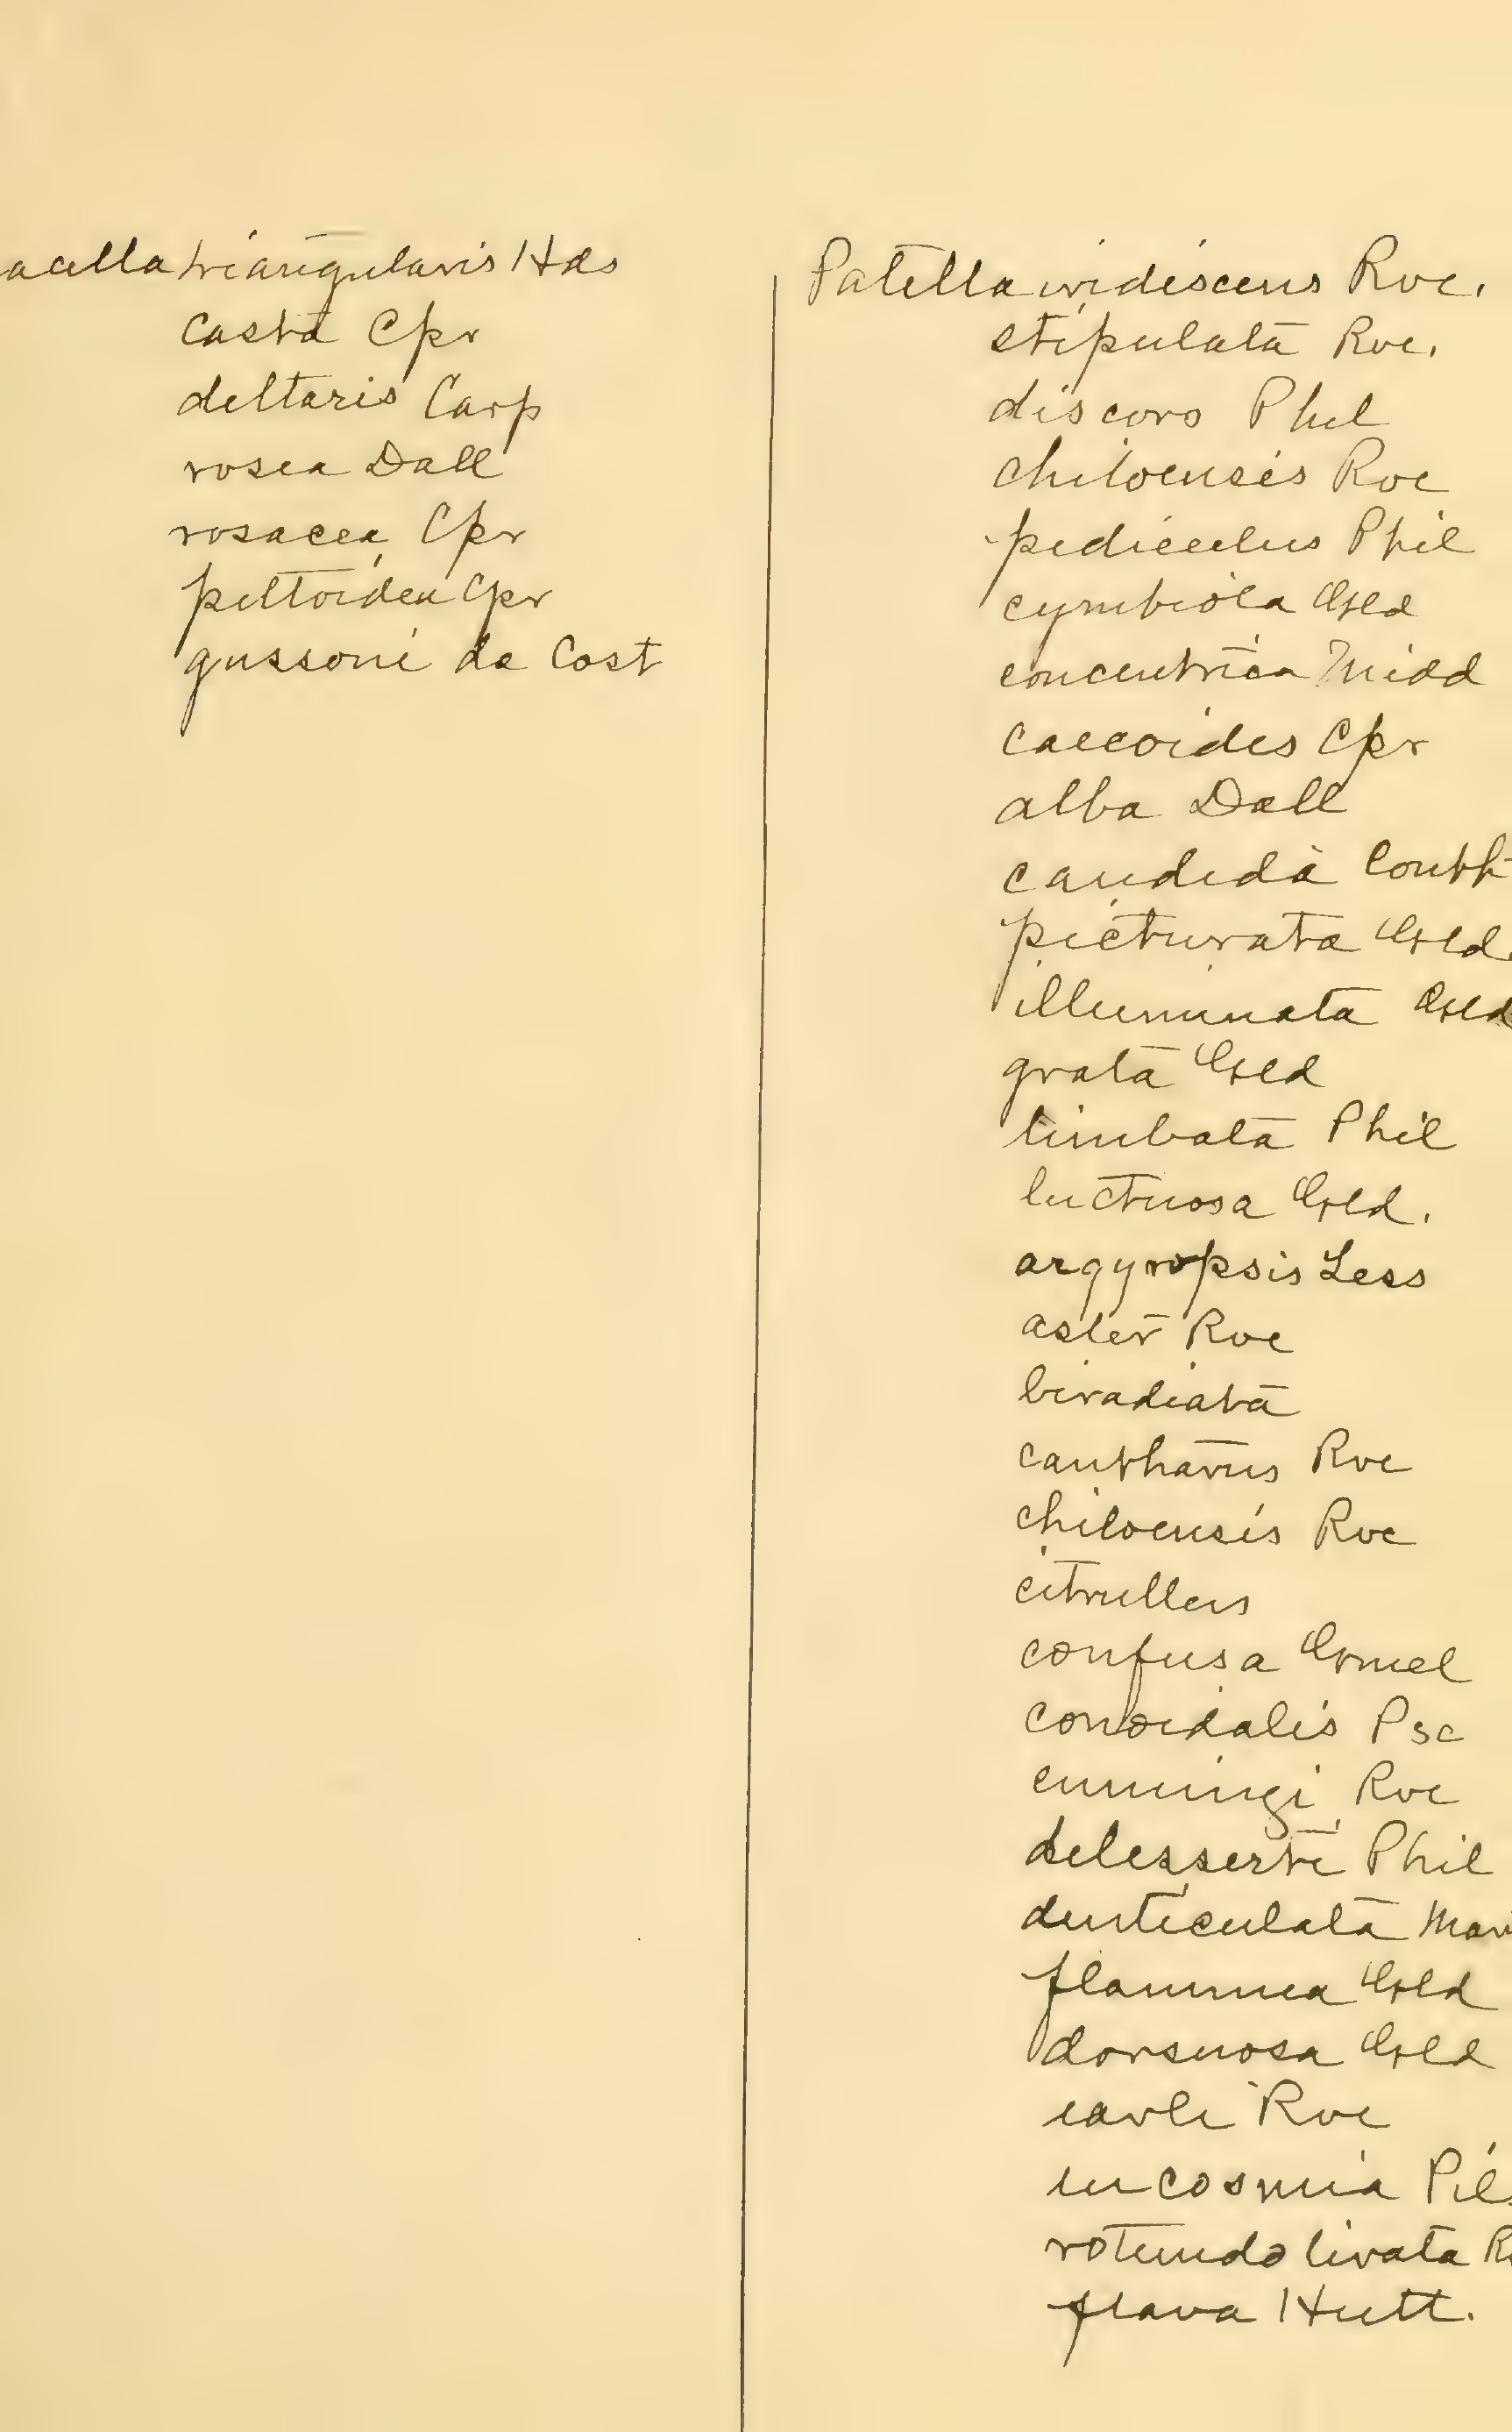 acella triangularis Hds
casta Cpr
deltaris Carp
rosea Dall
rosacea Cpr
peltoidea Cpr
gussoni da Cost
Patella iridiscens Rve.
stipulata Rve.
discors Phil
chiloensis Rve
pediculus Phil
cymbiola Gld
concentrica Midd
caecoides Cpr
alba Dall
candida Couth
picturata Gld
illuminata Gld
grata Gld
limbata Phil
luctuosa Gld.
argyropsis Less
aster Rve
biradiata
cantharus Rve
chiloensis Rve
citrullus
confusa Gmel
conoidalis Psc
cumingi Rve
delesserti Phil
denticulata Mar
flammea Gld
dorsuosa Gld
earli Rve
incosmia Pils
rotundo livata R
flava Hutt.